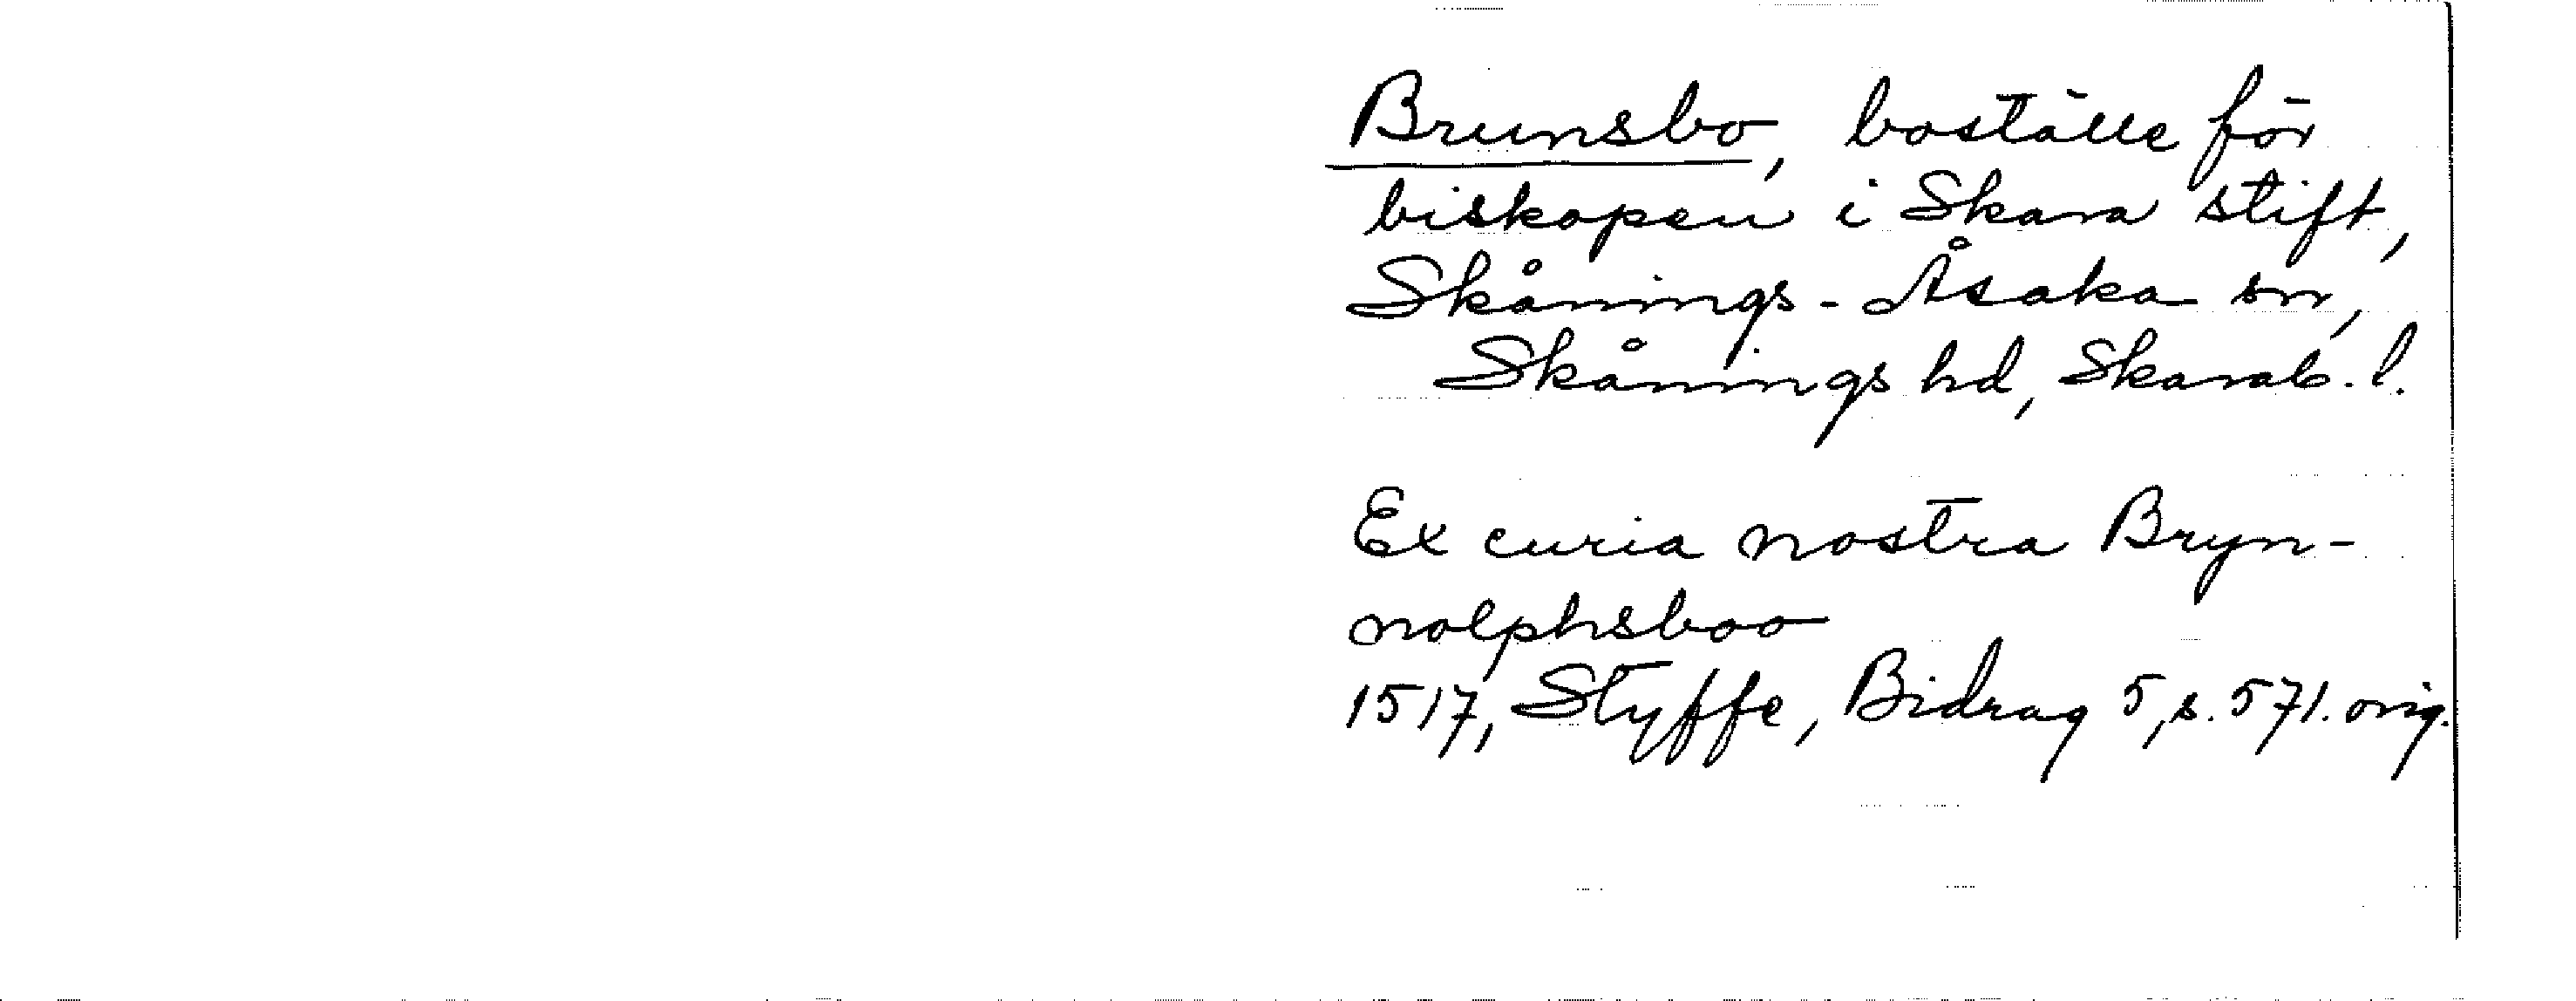 Brunsbo, boställe för
biskopen i Skara stift,
Skånings-Åsaka sn,
Skånings hd, Skarab. l.
Ex curia nostra Bryn-
nolphsboo
1517, Styffe, Bidrag 5, s. 571. orig.